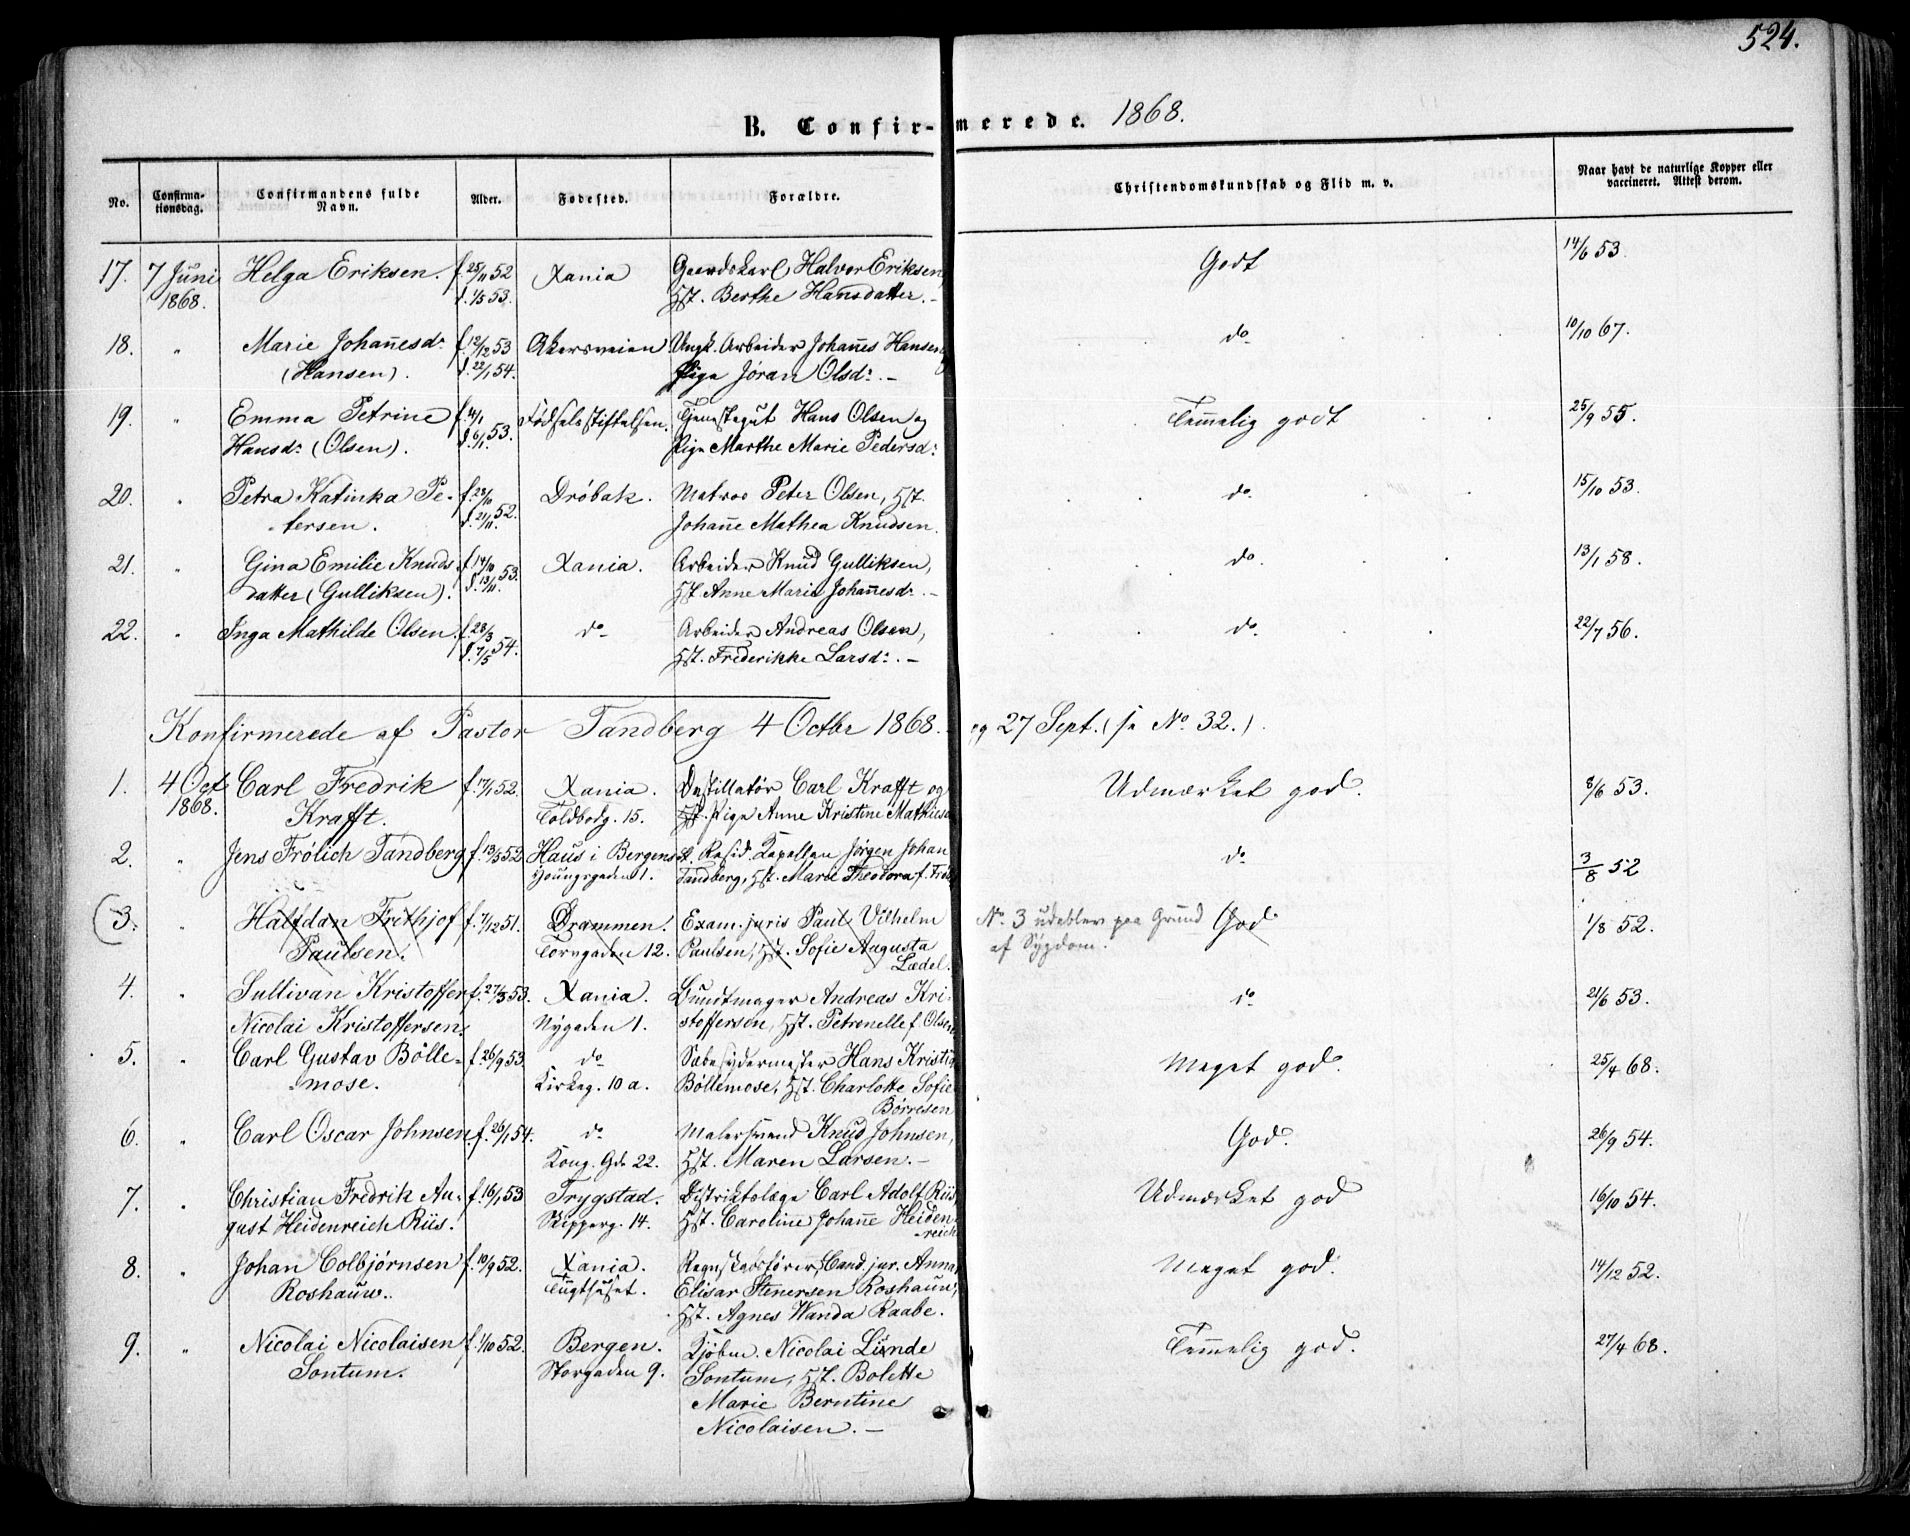 524.
B. Confirmerede. 1868.
No. Confirmationsdag. Confirmandens fulde Navn. Alder. Fødested. Forældre. Christendomskundskab og Flid m. v. Naar havt de naturlige Kopper eller vaccineret. Attest derom.
17. 7 Juni Helga Eriksen. f. 25/11 52 Xania Gaardskarl Halvor Eriksen, Godt 14/6 53.
1868. d. 1/5 53. Hst. Berthe Hansdatter. –
18. " Marie Johan̄esdr. f. 12/12 53 Akersveien. Ungk. Arbeider Johan̄es Hansen og do 10/10 67.
(Hansen). d. 22/1 54. Pige Jøran Olsdr. –
19. " Emma Petrine f. 4/1 Fødselsstiftelsen. Tjenestegut Hans Olsen og Tem̄elig godt 25/9 55.
Hansdr. (Olsen). d. 6/11 53. Pige Marthe Marie Pedersdr.
20. " Petra Katinka Pe- f. 23/10 Drøbak. Matros Peter Olsen, Hst. do 15/10 53.
tersen. d. 21/11 52. Johan̄e Mathea Knudsen.
21. " Gina Emilie Knuds- f. 14/10 Xania. Arbeider Knud Gulliksen, do. 13/1 58.
datter (Gulliksen). d. 13/11 53. Hst. Anne Marie Johan̄esdr. –
22. " Inga Mathilde Olsen. f. 28/3 do Arbeider Andreas Olsen, do. 22/7 56.
d. 7/5 54. Hst. Frederikke Larsdr. –
Konfirmerede af Pastor Tandberg 4 Octbr 1868. og 27 Sept. (se No. 32.).
1. 4 Oct. Carl Fredrik f. 17/1 52. Xania. Destillatør Carl Krafft og Udmærket god. 8/6 53.
1868. Krafft. Toldbodg. 15. Hst. Pige Anne Kristine Mathiesen
2. " Jens Frølich Tandberg f. 13/5 52 Haus i Bergens St. Resid. Kapellan Jørgen Johan do 3/8 52
Youngsgaden 1. Tandberg, Hst. Marie Theodora f. Frøl
(3. " Halfdan Frithjof f. 7/12 51. Drammen. Exam. juris Paul Vilhelm No. 3 udeblev paa Grund God 1/8 52.
Paulsen. Torvgaden 12. Paulsen, Hst. Sofie Augusta af Sygdom.
Lædel.
4. " Sullivan Kristoffer f. 27/3 53. Xania. Bundtmager Andreas Kri- do 21/6 53.
Nicolai Kristoffersen. Nygaden 1. stoffersen, Hst. Petronelle f. Olsen
5. " Carl Gustav Bølle- f. 26/9 53. do Sæbesydermester Hans Kristian Meget god. 25/4 68.
mose. Kirkeg. 10 a. Bøllemose, Hst. Charlotte Sofie
Børresen
6. " Carl Oscar Johnsen f. 26/1 54. do Malersvend Knud Johnsen, God. 26/9 54.
Kong. Gd. 22. Hst. Maren Larsen. –
7. " Christian Fredrik Au- f. 16/1 53 Trygstad. Distriktslæge Carl Adolf Riis, Udmærket god 16/10 54.
gust Heidenreich Riis. Skipperg. 14. Hst. Caroline Johan̄e Heiden-
reich
8. " Johan Colbjørnsen f. 19/9 52. Xania. Regnskabsfører, Cand. jur. Annar Meget god. 14/12 52.
Roshauw. Tugthuset. Elisar Stenersen Roshauw,
Hst. Agnes Wanda Raabe.
9. " Nicolai Nicolaisen f. 1/10 52. Bergen. Kjøbm. Nicolai Lunde Tem̄elig god. 27/4 68.
Sontum. Storgaden 9. Sontum, Hst. Bolette
Marie Berntine
Nicolaisen. –